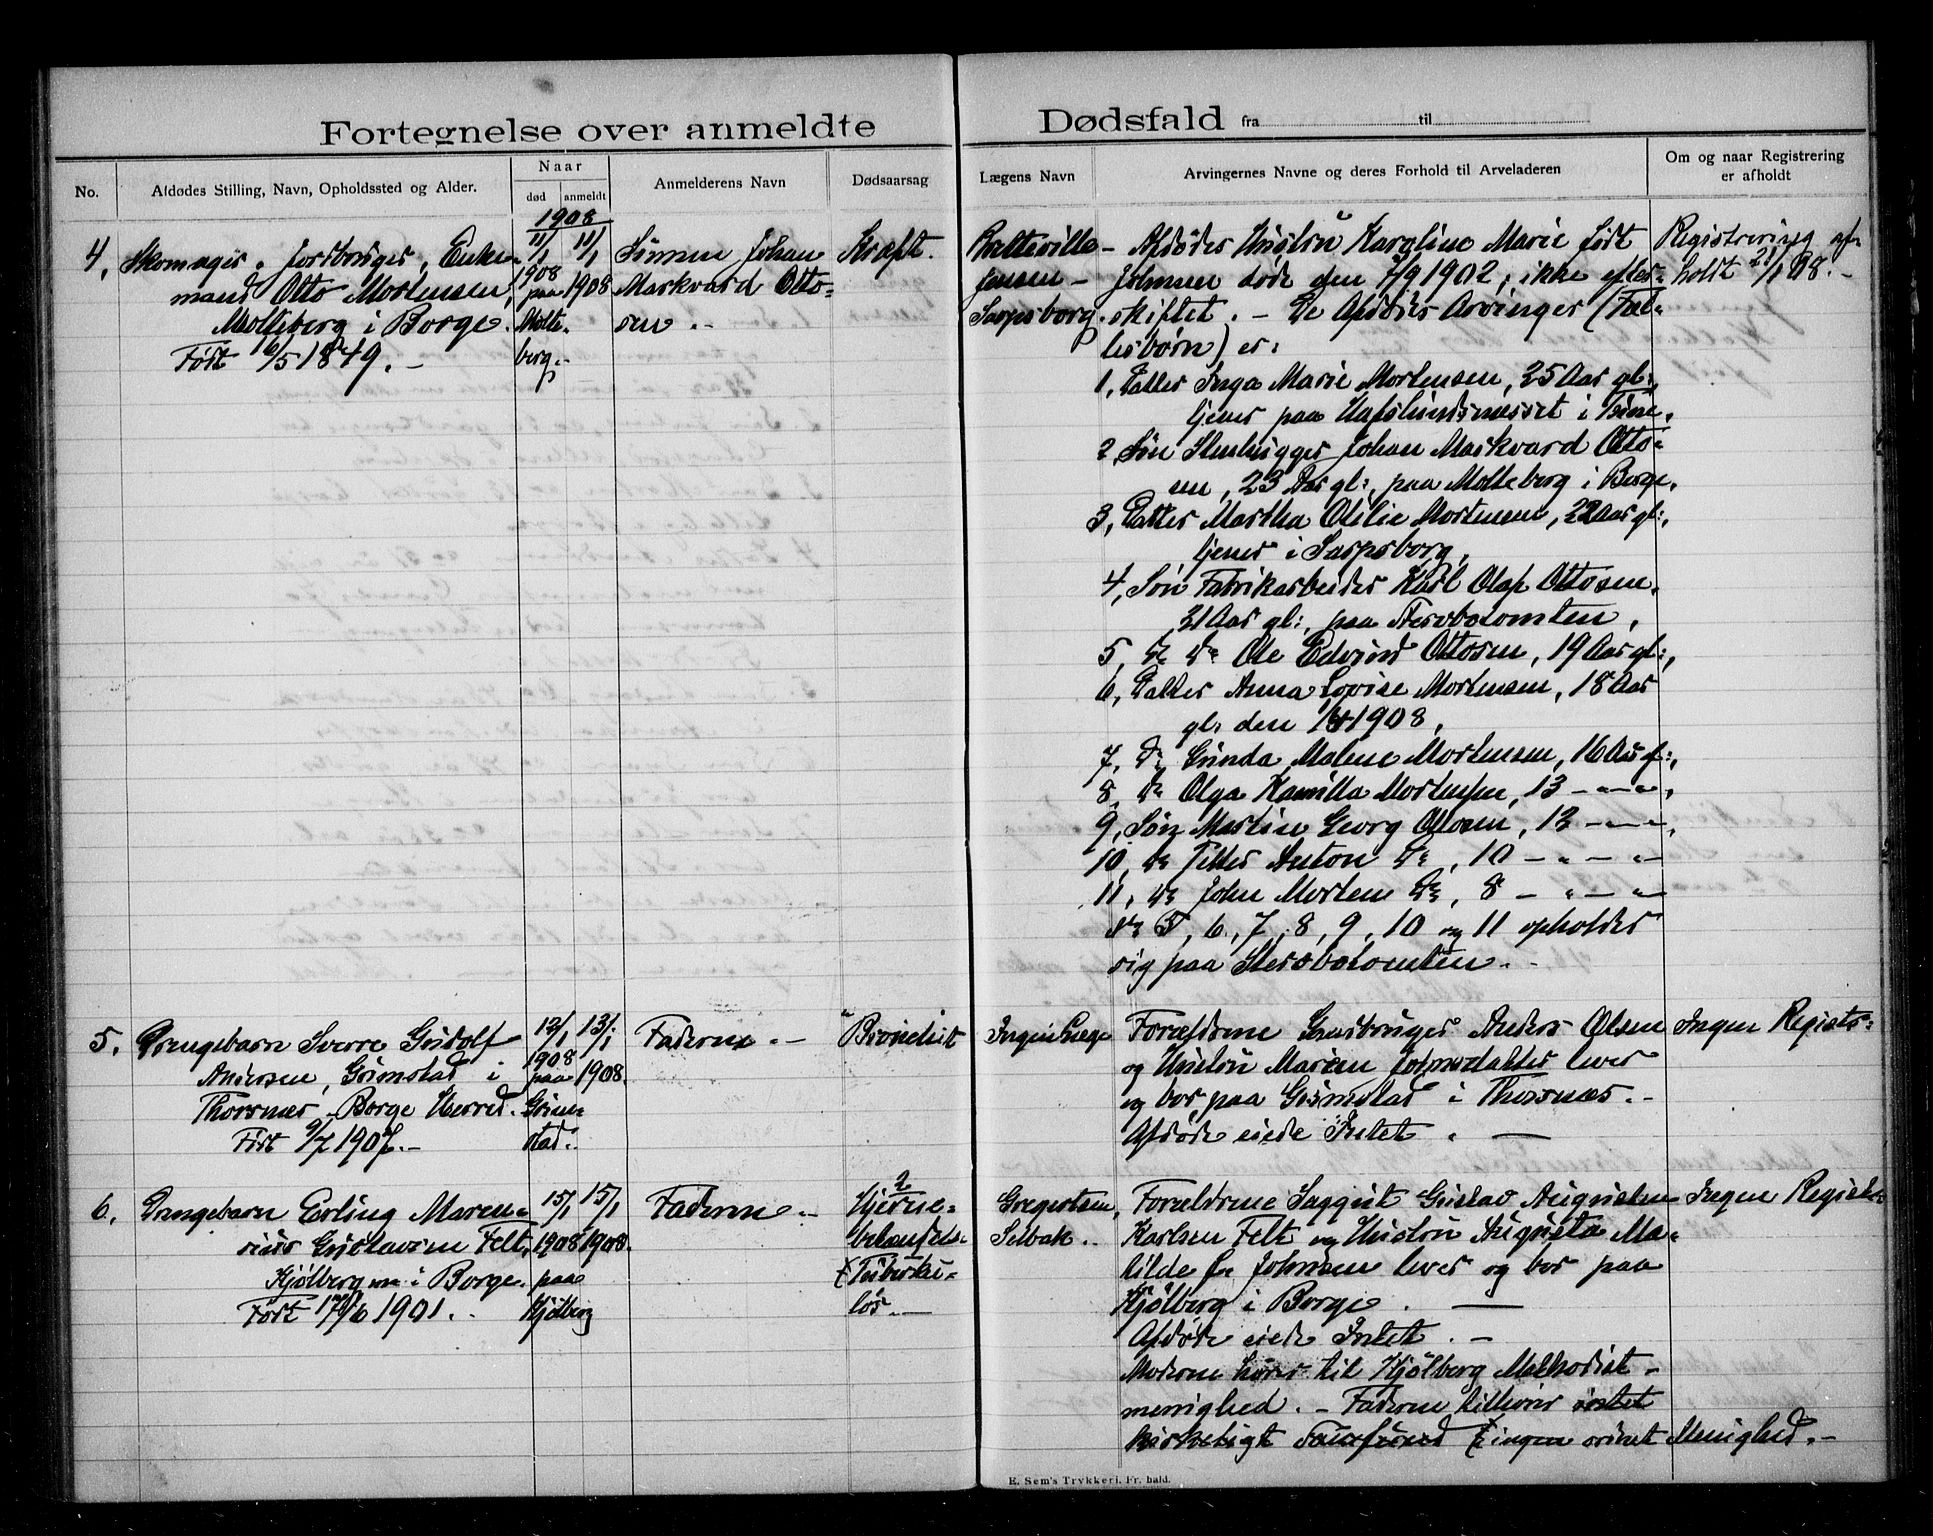 Fortegnelse over anmeldte Dødsfald fra til
No.
Afdødes Stilling, Navn, Opholdssted og Alder.
Naar
død anmeldt
Anmelderens Navn
Dødsaarsag
Lægens Navn
Arvingernes Navne og deres Forhold til Arveladeren
Om og naar Registrering
er afholdt
1908
4, Skomager, Jordbruger, Enke-
mand Otto Mortensen,
Molteberg i Borge.
Født 6/5 1849. –
11/1
1908
paa
Molte-
berg. –
11/1
1908
Sønnen Johan
Markvard Otto-
sen. –
Kræft.
Jensen –
Sarpsborg.
– Afdødes Hustru Karoline Marie født
Johnsen døde den 7/9 1902, ikke efter-
skiftet. – De Afdødes Arvinger (Fæl-
lesbørn) er:
1, Datter Inga Marie Mortensen, 25 Aar gl:,
tjener paa Hafslundsnesset i Tune,
2, Søn Stenhugger Johan Markvard Otto-
sen, 23 Aar gl:, paa Molteberg i Borge,
3, Datter Martha Otilie Mortensen, 22 Aar gl:,
tjener i Sarpsborg,
4, Søn Fabrikarbeider Karl Olaf Ottosen,
21 Aar gl:, paa Stervbotomten,
5, do do Ole Edvind Ottosen, 19 Aar gl:,
6, Datter Anna Lovise Mortensen, 18 Aar
gl: den 1908,
7, do Gunda Malene Mortensen, 16 Aar gl:,
8, do Olga Kamilla Mortensen, 13 – " – " –,
9, Søn Martin Georg Ottosen, 12 – " – " –,
10, do Petter Anton do, 10 – " – " –
11, do John Morten do, 8 – " – " –
No 5, 6, 7, 8, 9, 10 og 11 opholder
sig paa Stervbotomten. –
Registrering af-
holdt 21/1 08. –
5. Drengebarn Sverre Gudolf
Andersen, Grimstad i
Thorsnæs, Borge Herred.
Født 9/7 1907. –
12/1
1908
paa
Grim-
stad.
13/1
1908.
Faderen. –
Ingen Læge
Forældrene Gaardbruger Anders Olsen
og Hustru Maren Johnsdatter lever
og bor paa Grimstad i Thorsnæs. –
Afdøde eiede Intet. –
Ingen Registr:
6. Drengebarn Erling Maren-
sius Gustavsen Felt,
Kjølberg i Borge.
Født 17/6 1901. –
15/1
1908
paa
Kjølberg
15/1
1908.
Faderen. –
Hjerne-
betændelse
(Tuberku-
løs. –
Gregertsen,
Selbak. –
Forældrene Gustav Augustin
Karlsen Felt og Hustru Augusta Ma-
tilde f. Johnsen lever og bor paa
Kjølberg i Borge. –
Afdøde eiede Intet. –
Moderen hører til Kjølberg Methodist-
menighed. – Faderen tilhører intet
kirkeligt Samfund ingen ordnet Menighed. –
Ingen Registr:
E. Sem's Trykkeri, Fr. hald.